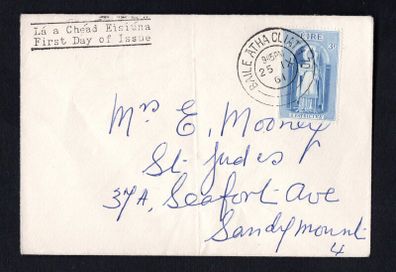 Lá a Chéad Eisiúna
First Day of Issue
BAILE ÁTHA CLIATH
9.45PM
25 IX
61
ÉIRE
Mrs E. Mooney
St. Judes
37A, Seafort Ave
Sandymount
4